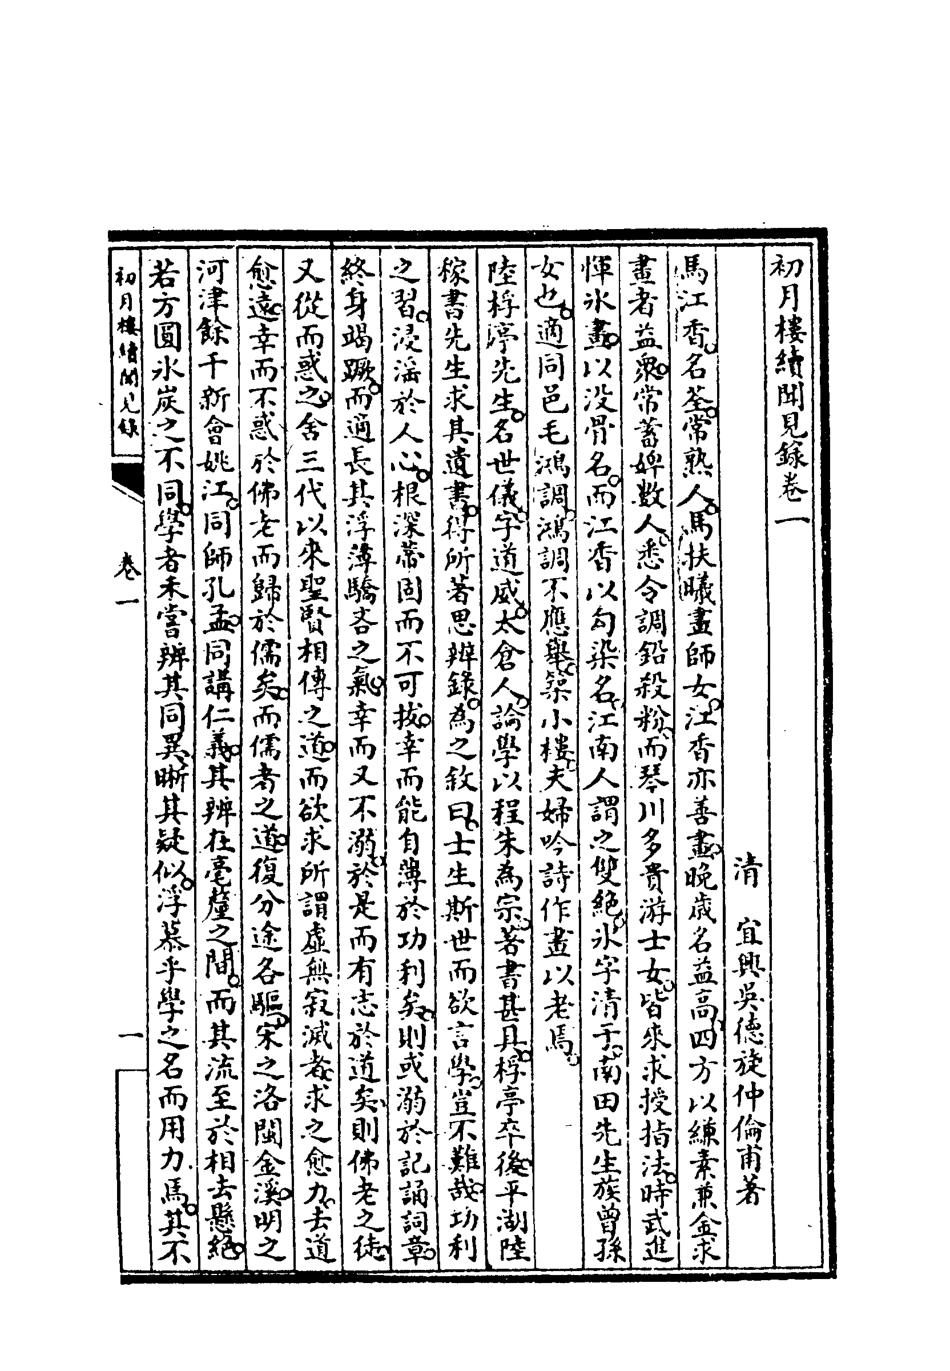 初月樓續聞見錄卷一
清　宜興吳德旋仲倫甫著
馬江香。名荃。常熟人。馬扶曦畫師女。江香亦善畫。晚歲名益高。四方以縑素兼金求
畫者益衆。常蓄婢數人。悉令調鉛殺粉。而琴川多貴游士女。皆來求授指法。時武進
惲冰畫。以没骨名。而江香以勾染名。江南人謂之雙絕。冰字清于。南田先生族曾孫
女也。適同邑毛鴻調。鴻調不應舉。築小樓。夫婦吟詩作畫以老焉。
陸桴亭先生。名世儀。字道威。太倉人。論學以程朱為宗。著書甚具。桴亭卒後。平湖陸
稼書先生求其遺書。得所著思辨錄。為之敘曰。士生斯世而欲言學。豈不難哉。功利
之習。浸滛於人心。根深蒂固而不可拔。幸而能自薄於功利矣。則或溺於記誦詞章。
終身竭蹶。而適長其浮薄驕吝之氣。幸而又不溺。於是而有志於道矣。則佛老之徒。
又從而惑之。舍三代以來聖賢相傳之道。而欲求所謂虛無寂滅者。求之愈力。去道
愈遠。幸而不惑於佛老而歸於儒矣。而儒者之道。復分途各驅。宋之洛閩金溪。明之
河津餘干新會姚江。同師孔孟。同講仁義。其辨在毫釐之間。而其流至於相去懸絕。
若方圓氷炭之不同。學者未嘗辨其同異。晰其疑似。浮慕乎學之名而用力焉。其不
初月樓續聞見錄
卷一
一